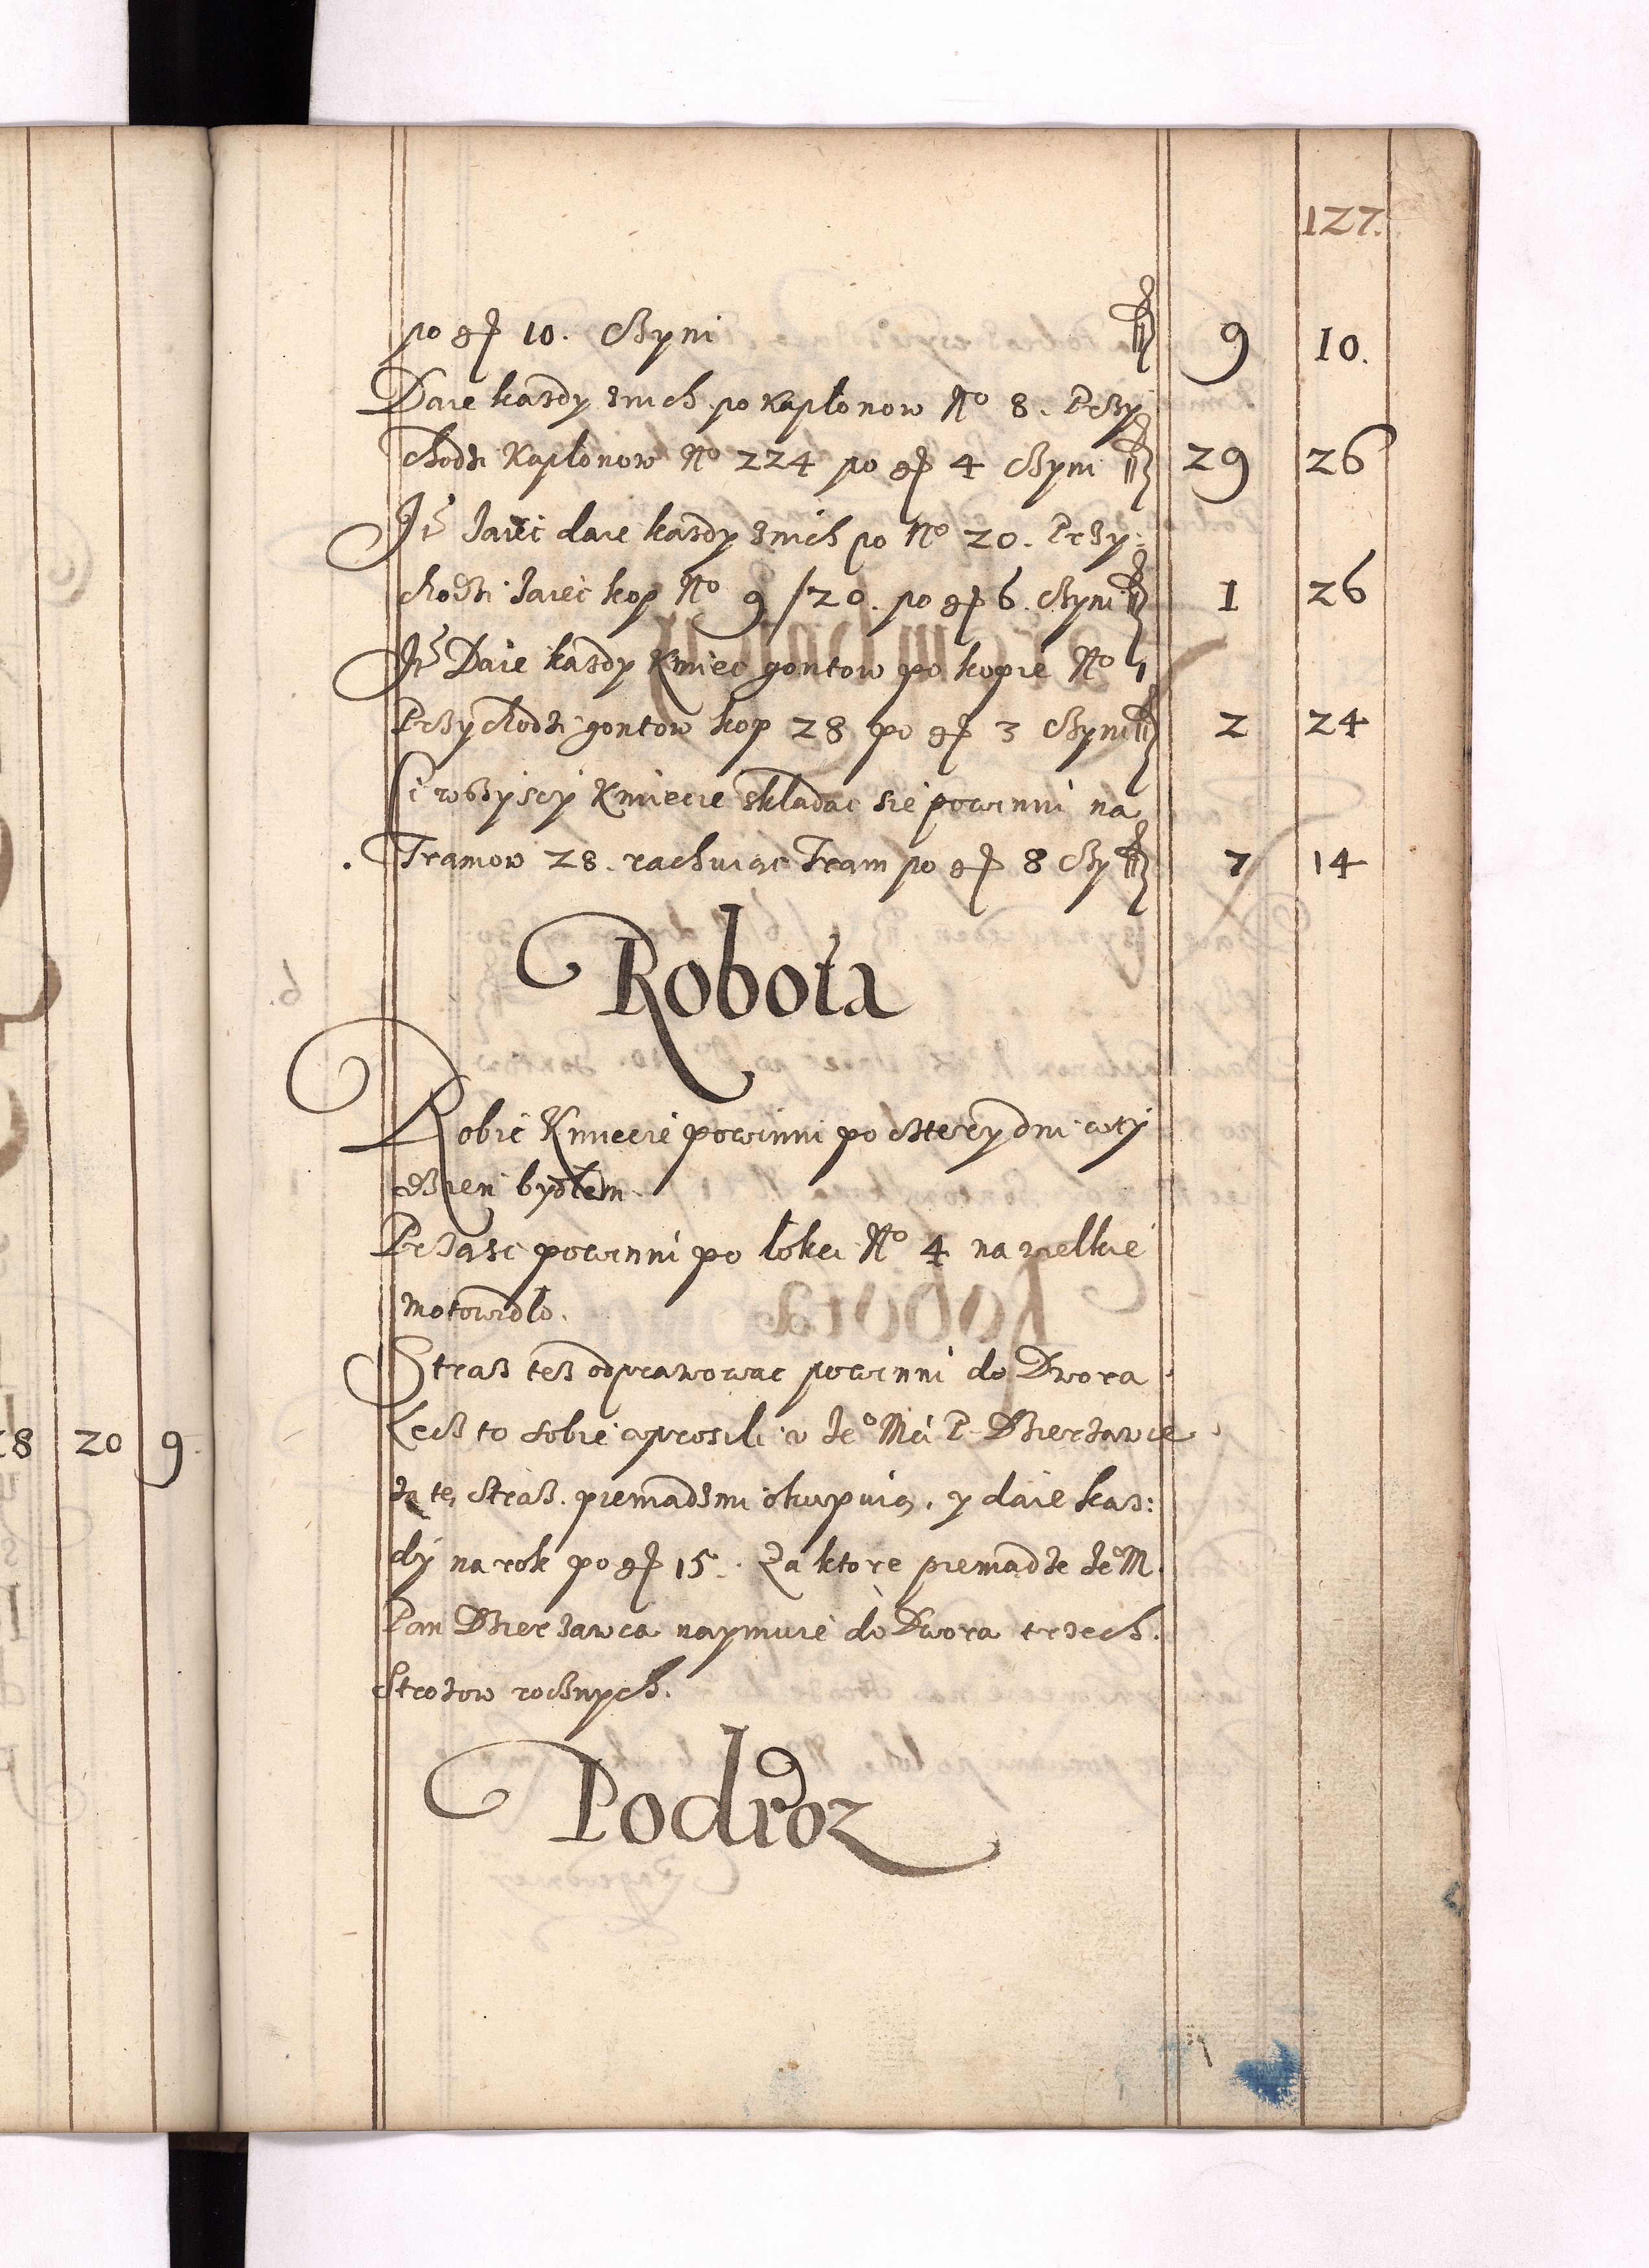 127.
po gr 10. czyni fl 9 10.
Daie kazdy znich po kaplonow No 8. Przy
chodzi kaplonow No 224 po gr 4 czyni fl 29 26
Jt Jaiec daie kazdy znich po No 20. Przy:
chodzi Jaiec kop No 9/20. po gr 6. czyni fl 1 26
Jt Daie kazdy Kmiec gontow po kopie No 1
Przychodzi gontow kop 28 po gr 3 czyni fl 2 24
Ci wszyscy Kmiecie skladac sie powinni na
Tramow 28. rachuiąc Tram po gr 8 czy fl 7 14
Robota
Robic Kmiecie powinni po cztery dni w ty
dzien bydlem.
Przasc powinni po lokci No 4 na wielkie
motowidlo.
Straz tez odprawowac powinni do Dwora
Lecz to sobie uprosili u Je o Mci P. Dzierzawce
ze tę Straz pieniadzmi okupuią, y daie kaz:
dy na rok po gr 15. Za ktore pieniadze Je M.
Pan Dzierzawca naymuie do Dwora trzech
Strozow rocznych.
Podroz
18 20 9.